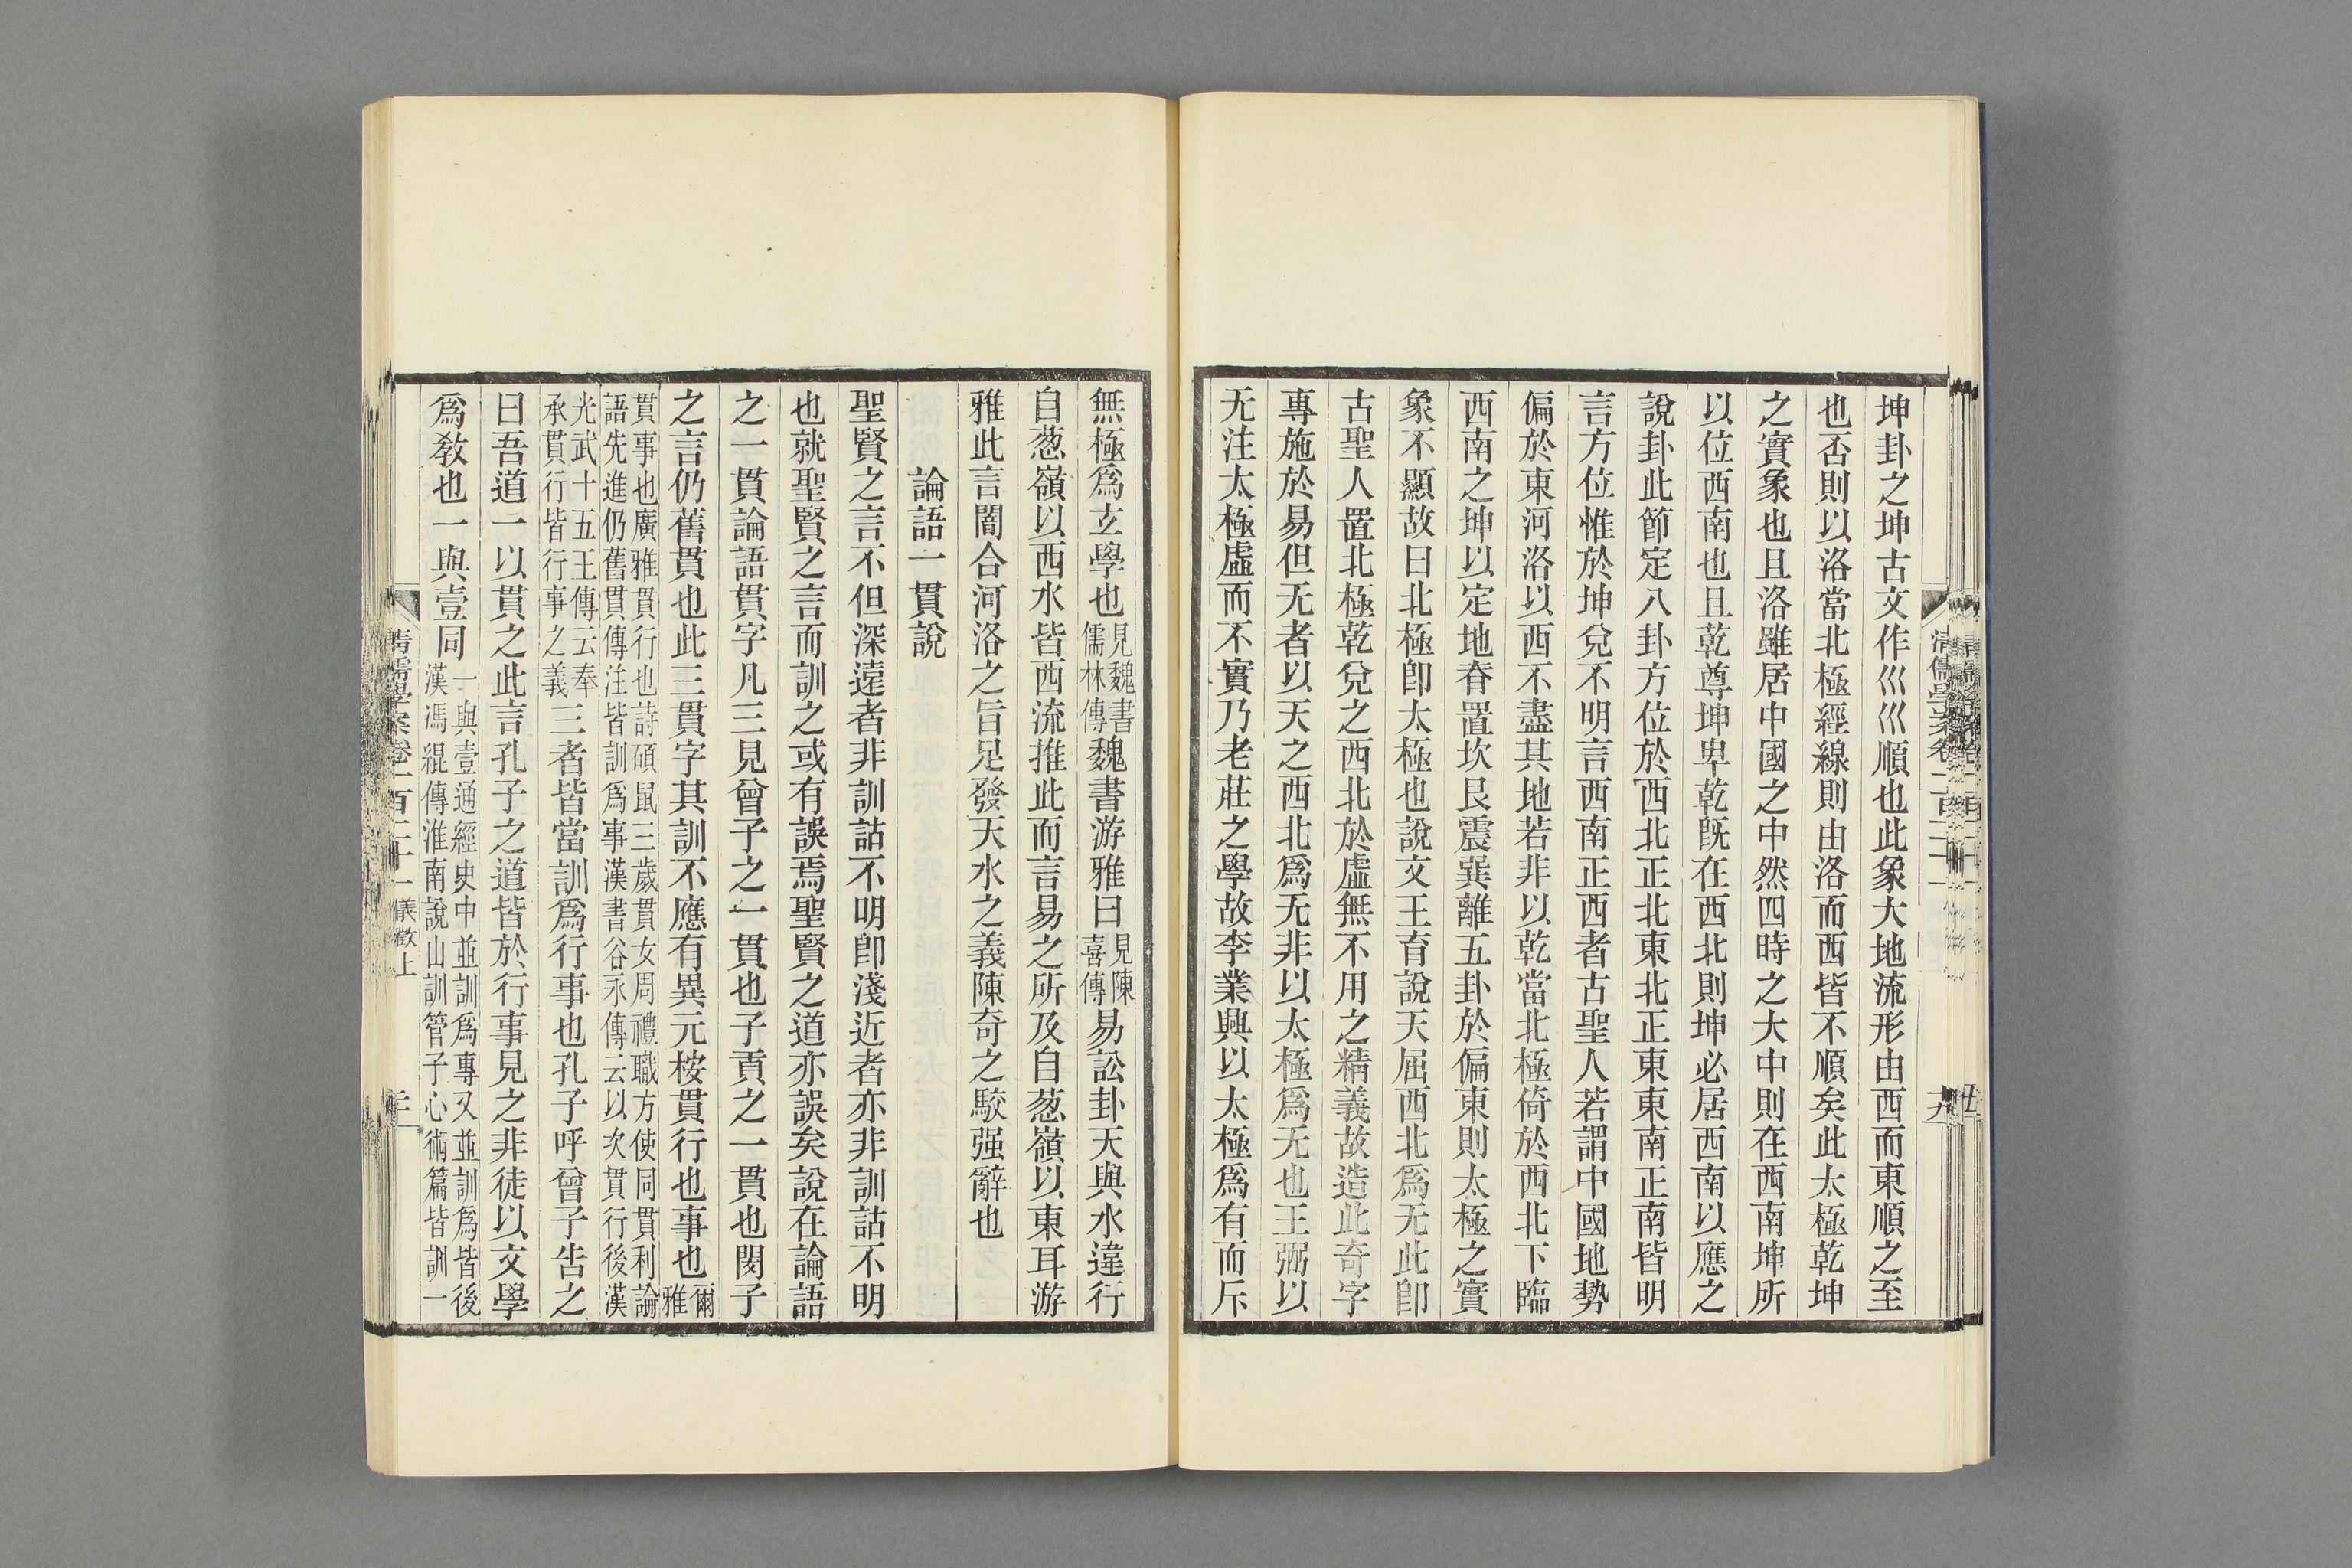 坤卦之坤古文作巛巛順也此象大地流形由西而東順之至
也否則以洛當北極經線則由洛而西皆不順矣此太極乾坤
之實象也且洛雖居中國之中然四時之大中則在西南坤所
以位西南也且乾尊坤卑乾旣在西北則坤必居西南以應之
說卦此節定八卦方位於西北正北東北正東東南正南皆明
言方位惟於坤兌不明言西南正西者古聖人若謂中國地勢
偏於東河洛以西不盡其地若非以乾當北極倚於西北下臨
西南之坤以定地脊置坎艮震巽離五卦於偏東則太極之實
象不顯故曰北極卽太極也說文王育說天屈西北爲无此卽
古聖人置北極乾兌之西北於虛無不用之精義故造此奇字
專施於易但无者以天之西北爲无非以太極爲无也王弼以
无注太極虛而不實乃老莊之學故李業興以太極爲有而斥
無極爲玄學也見魏書儒林傳魏書游雅曰見陳喜傳易訟卦天與水違行
自葱嶺以西水皆西流推此而言易之所及自葱嶺以東耳游
雅此言闇合河洛之旨足發天水之義陳奇之駁强辭也
論語一貫說
聖賢之言不但深遠者非訓詁不明卽淺近者亦非訓詁不明
也就聖賢之言而訓之或有誤焉聖賢之道亦誤矣說在論語
之一貫論語貫字凡三見曾子之一貫也子貢之一貫也閔子
之言仍舊貫也此三貫字其訓不應有異元桉貫行也事也爾雅
貫事也廣雅貫行也詩碩鼠三歲貫女周禮職方使同貫利論
語先進仍舊貫傳注皆訓爲事漢書谷永傳云以次貫行後漢
光武十五王傳云奉
承貫行皆行事之義三者皆當訓爲行事也孔子呼曾子告之
曰吾道一以貫之此言孔子之道皆於行事見之非徒以文學
爲敎也一與壹同一與壹通經史中並訓爲專又並訓爲皆後
漢馮緄傳淮南說山訓管子心術篇皆訓一
清儒學案卷一百二十一儀徵上